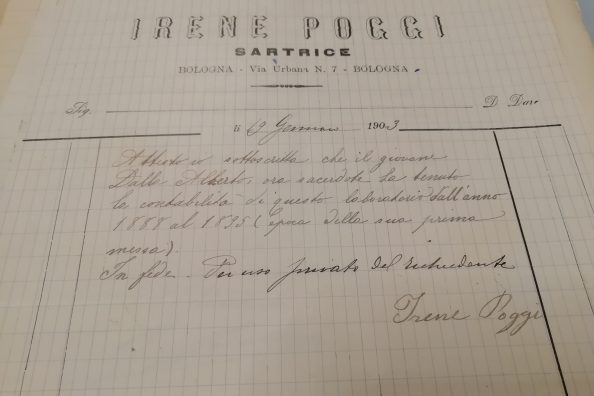 IRENE POGGI
SARTRICE
BOLOGNA - Via Urbana N. 7 - BOLOGNA
Sig. D Dare
li 19 Gennaio 1903
Attesto io sottoscritta che il giovane
Dalle Alberto, ora sacerdote ha tenuto
la contabilità di questo laboratorio dall'anno
1888 al 1895 (epoca della sua prima
messa).
In fede - Per uso privato del richiedente
Irene Poggi